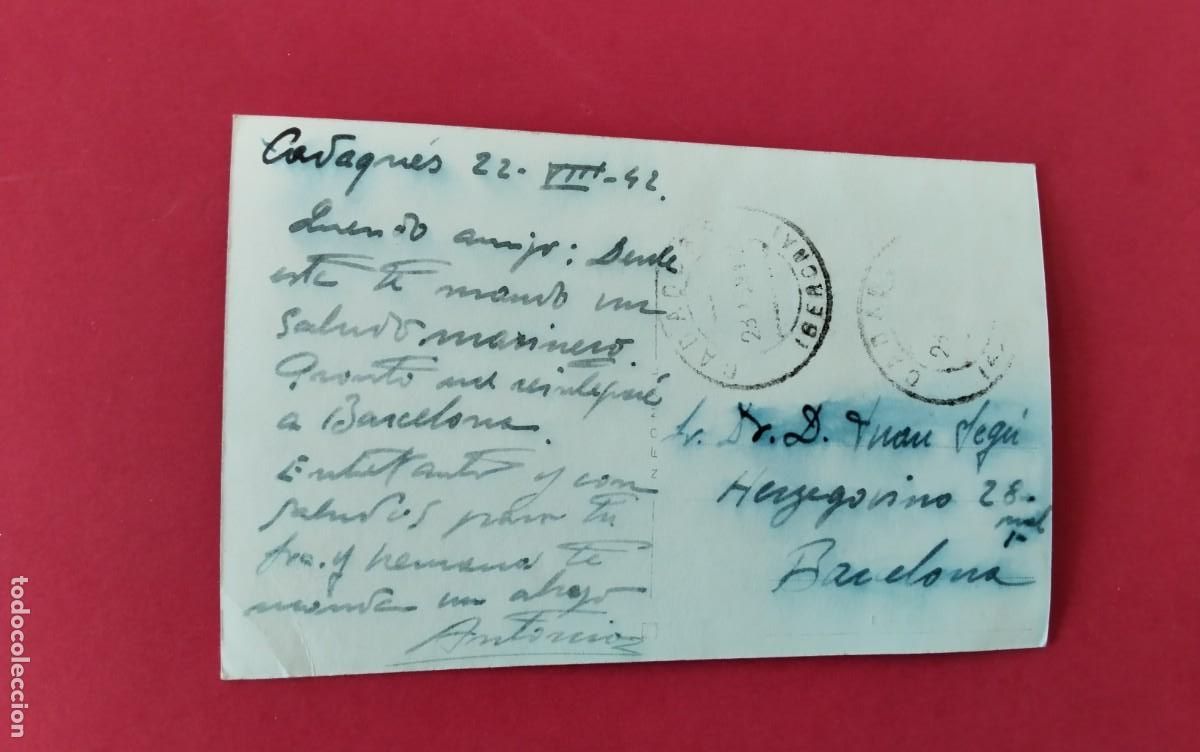 Cadaqués 22-VIII-42.
Querido amigo: Desde
esta te mando un
saludo marinero.
Pronto me reintegraré
a Barcelona.
Entretanto y con
saludos para tu
Sra. y hermana te
manda un abrazo
Antonio
CADAQUES (GERONA)
Sr. Dr. D. Juan Segú
Herzegovino 28-
Barcelona
todocoleccion